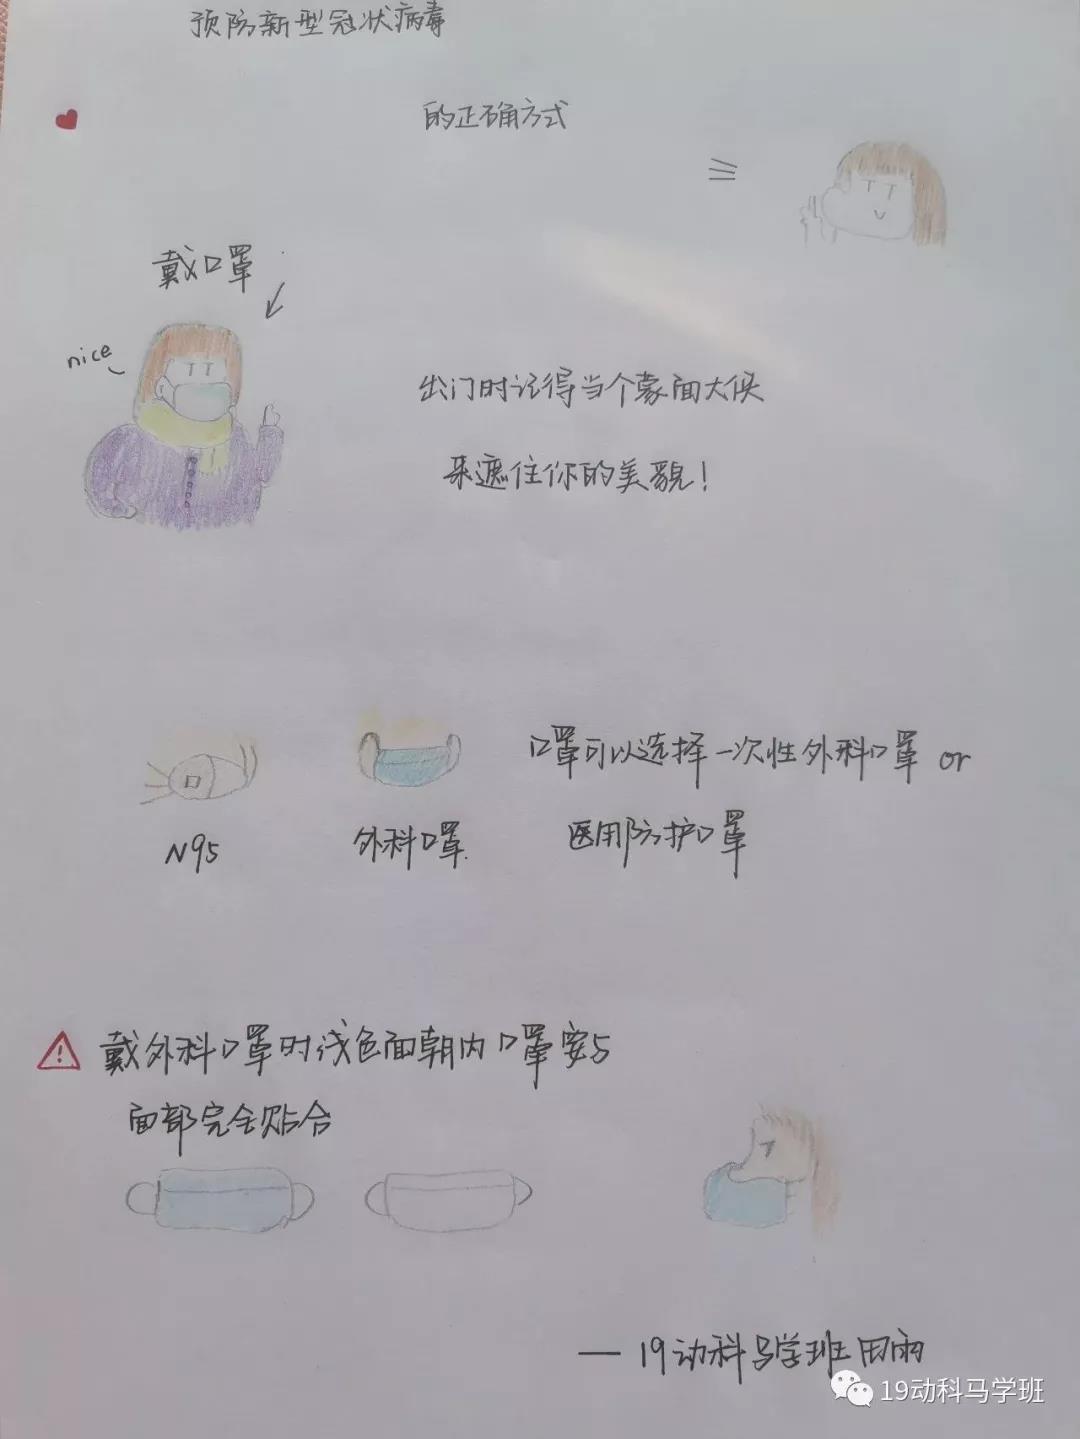 预防新型冠状病毒
的正确方式
戴口罩
nice
出门时记得当个蒙面大侠
来遮住你的美貌!
口罩可以选择一次性外科口罩 or
N95
外科口罩
医用防护口罩
戴外科口罩时浅色面朝内口罩要与
面部完全贴合
— 19动科马学班田雨
19动科马学班